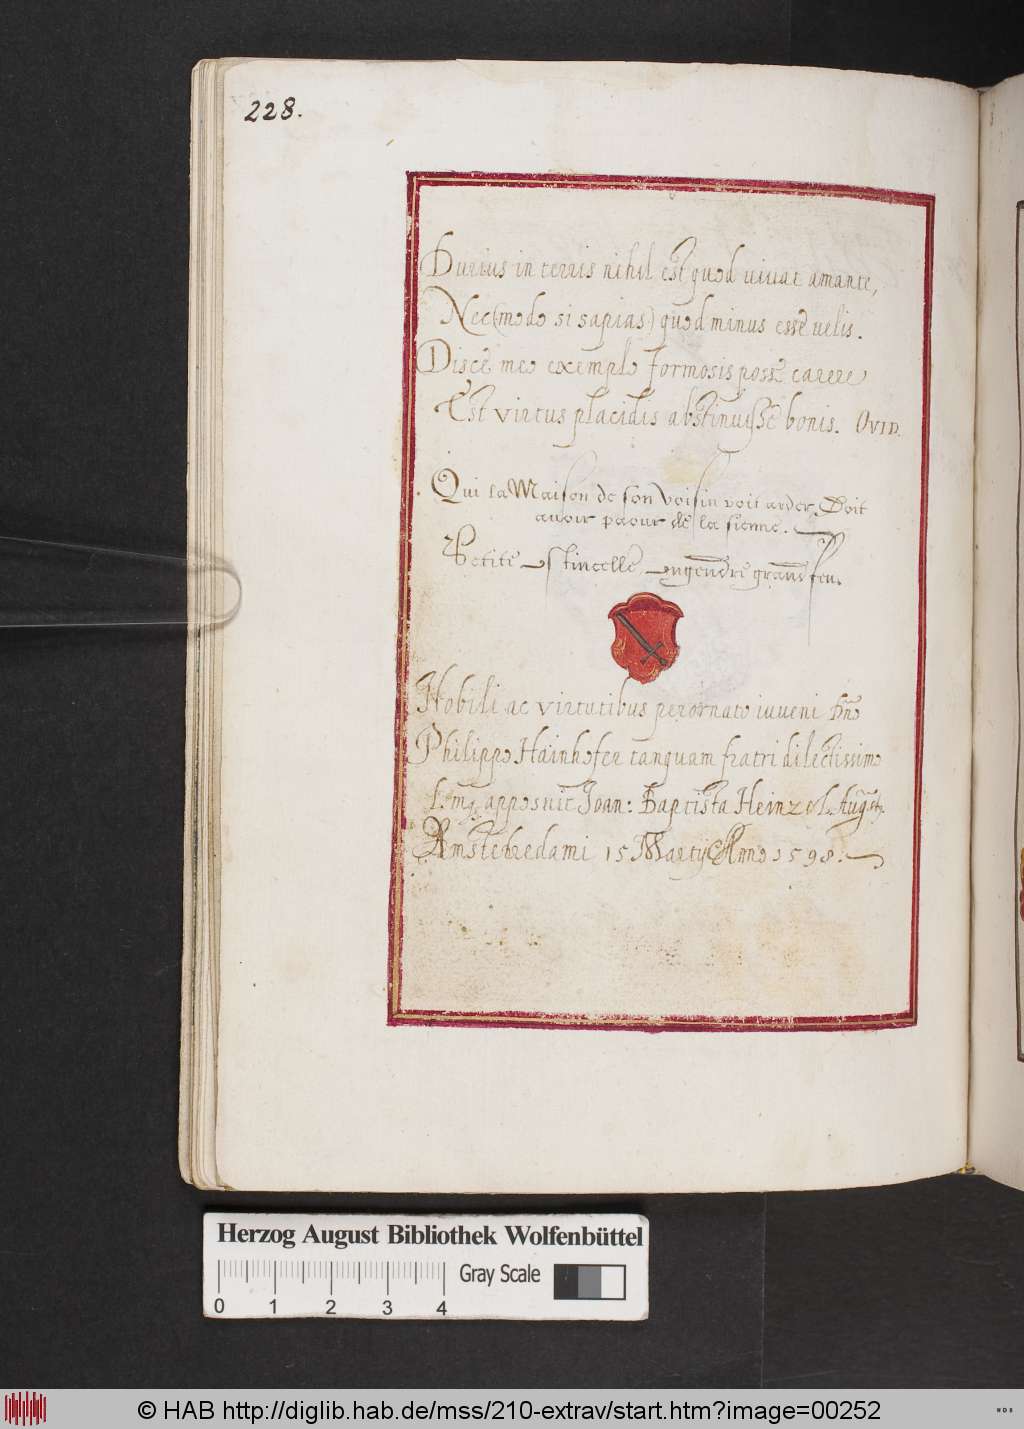 228.
Durius in terris nihil est quod vivat amante,
Nec (modo si sapias) quod minus esse velis.
Disce meo exemplo formosis posse carere
Est virtus placidis abstinuisse bonis. OVID.
Qui la Maison de son Voisin voit arder, Doit
avoir paour de la sienne.
Petite estincelle engendre grand feu.
Nobili ac virtutibus perornato iuveni Dno
Philippo Hainhofer tanquam fratri dilectissimo
apposuit Joan: Baptista Heinzel.
Amsterredami 15 Martij Anno 1598.
Herzog August Bibliothek Wolfenbüttel
Gray Scale
0 1 2 3 4
© HAB http://diglib.hab.de/mss/210-extrav/start.htm?image=00252